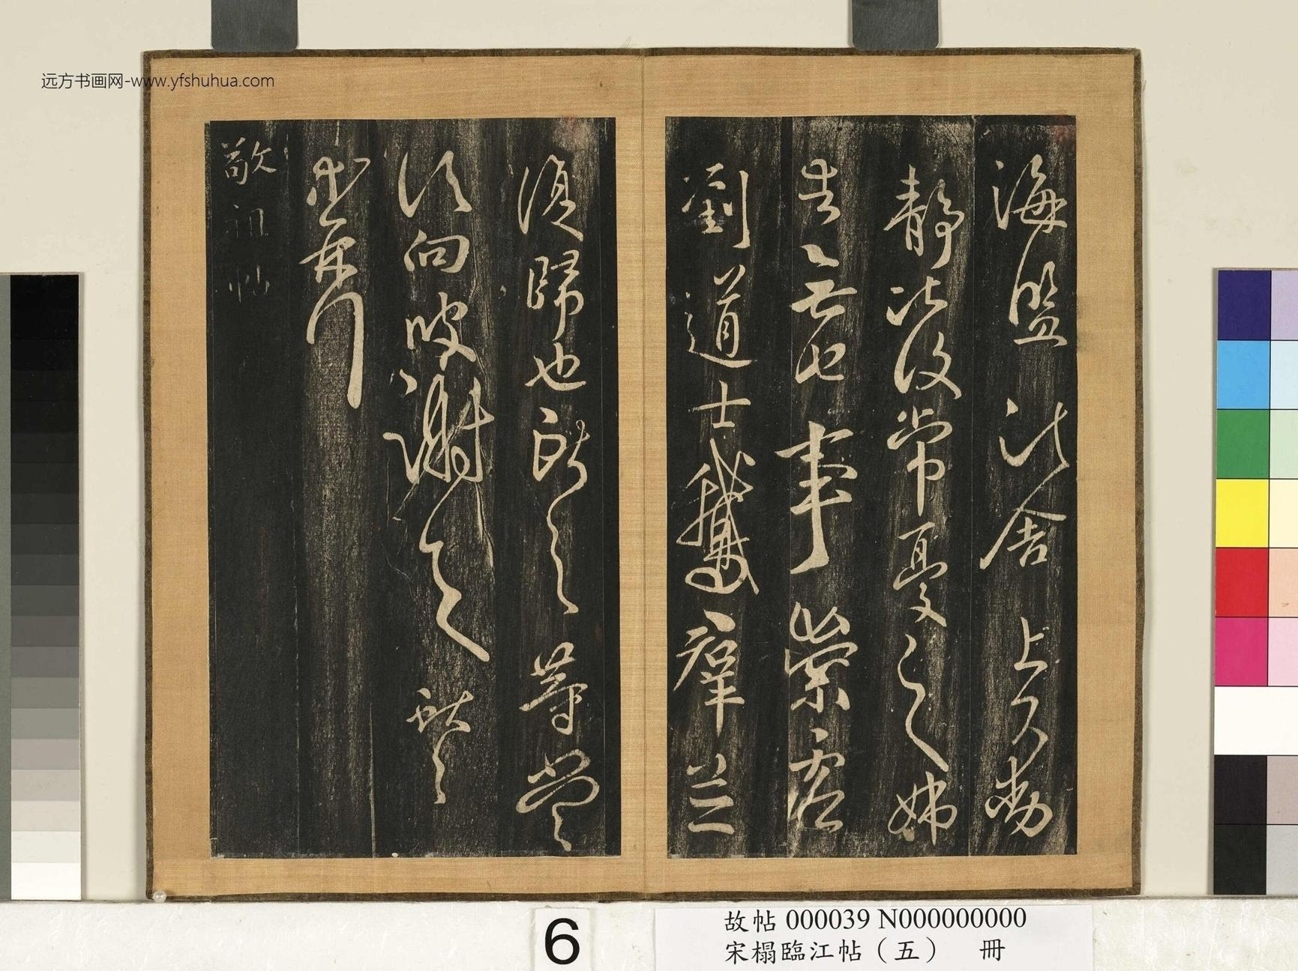 远方书画网-www.yfshuhua.com
海鹽諸舍上下動
靜比復常憂之姊
告無他事崇虛
劉道士鵝群並
復歸也獻之等當
須向彼謝之獻之
敬祖帖
6
故帖 000039 N000000000
宋榻臨江帖（五） 冊